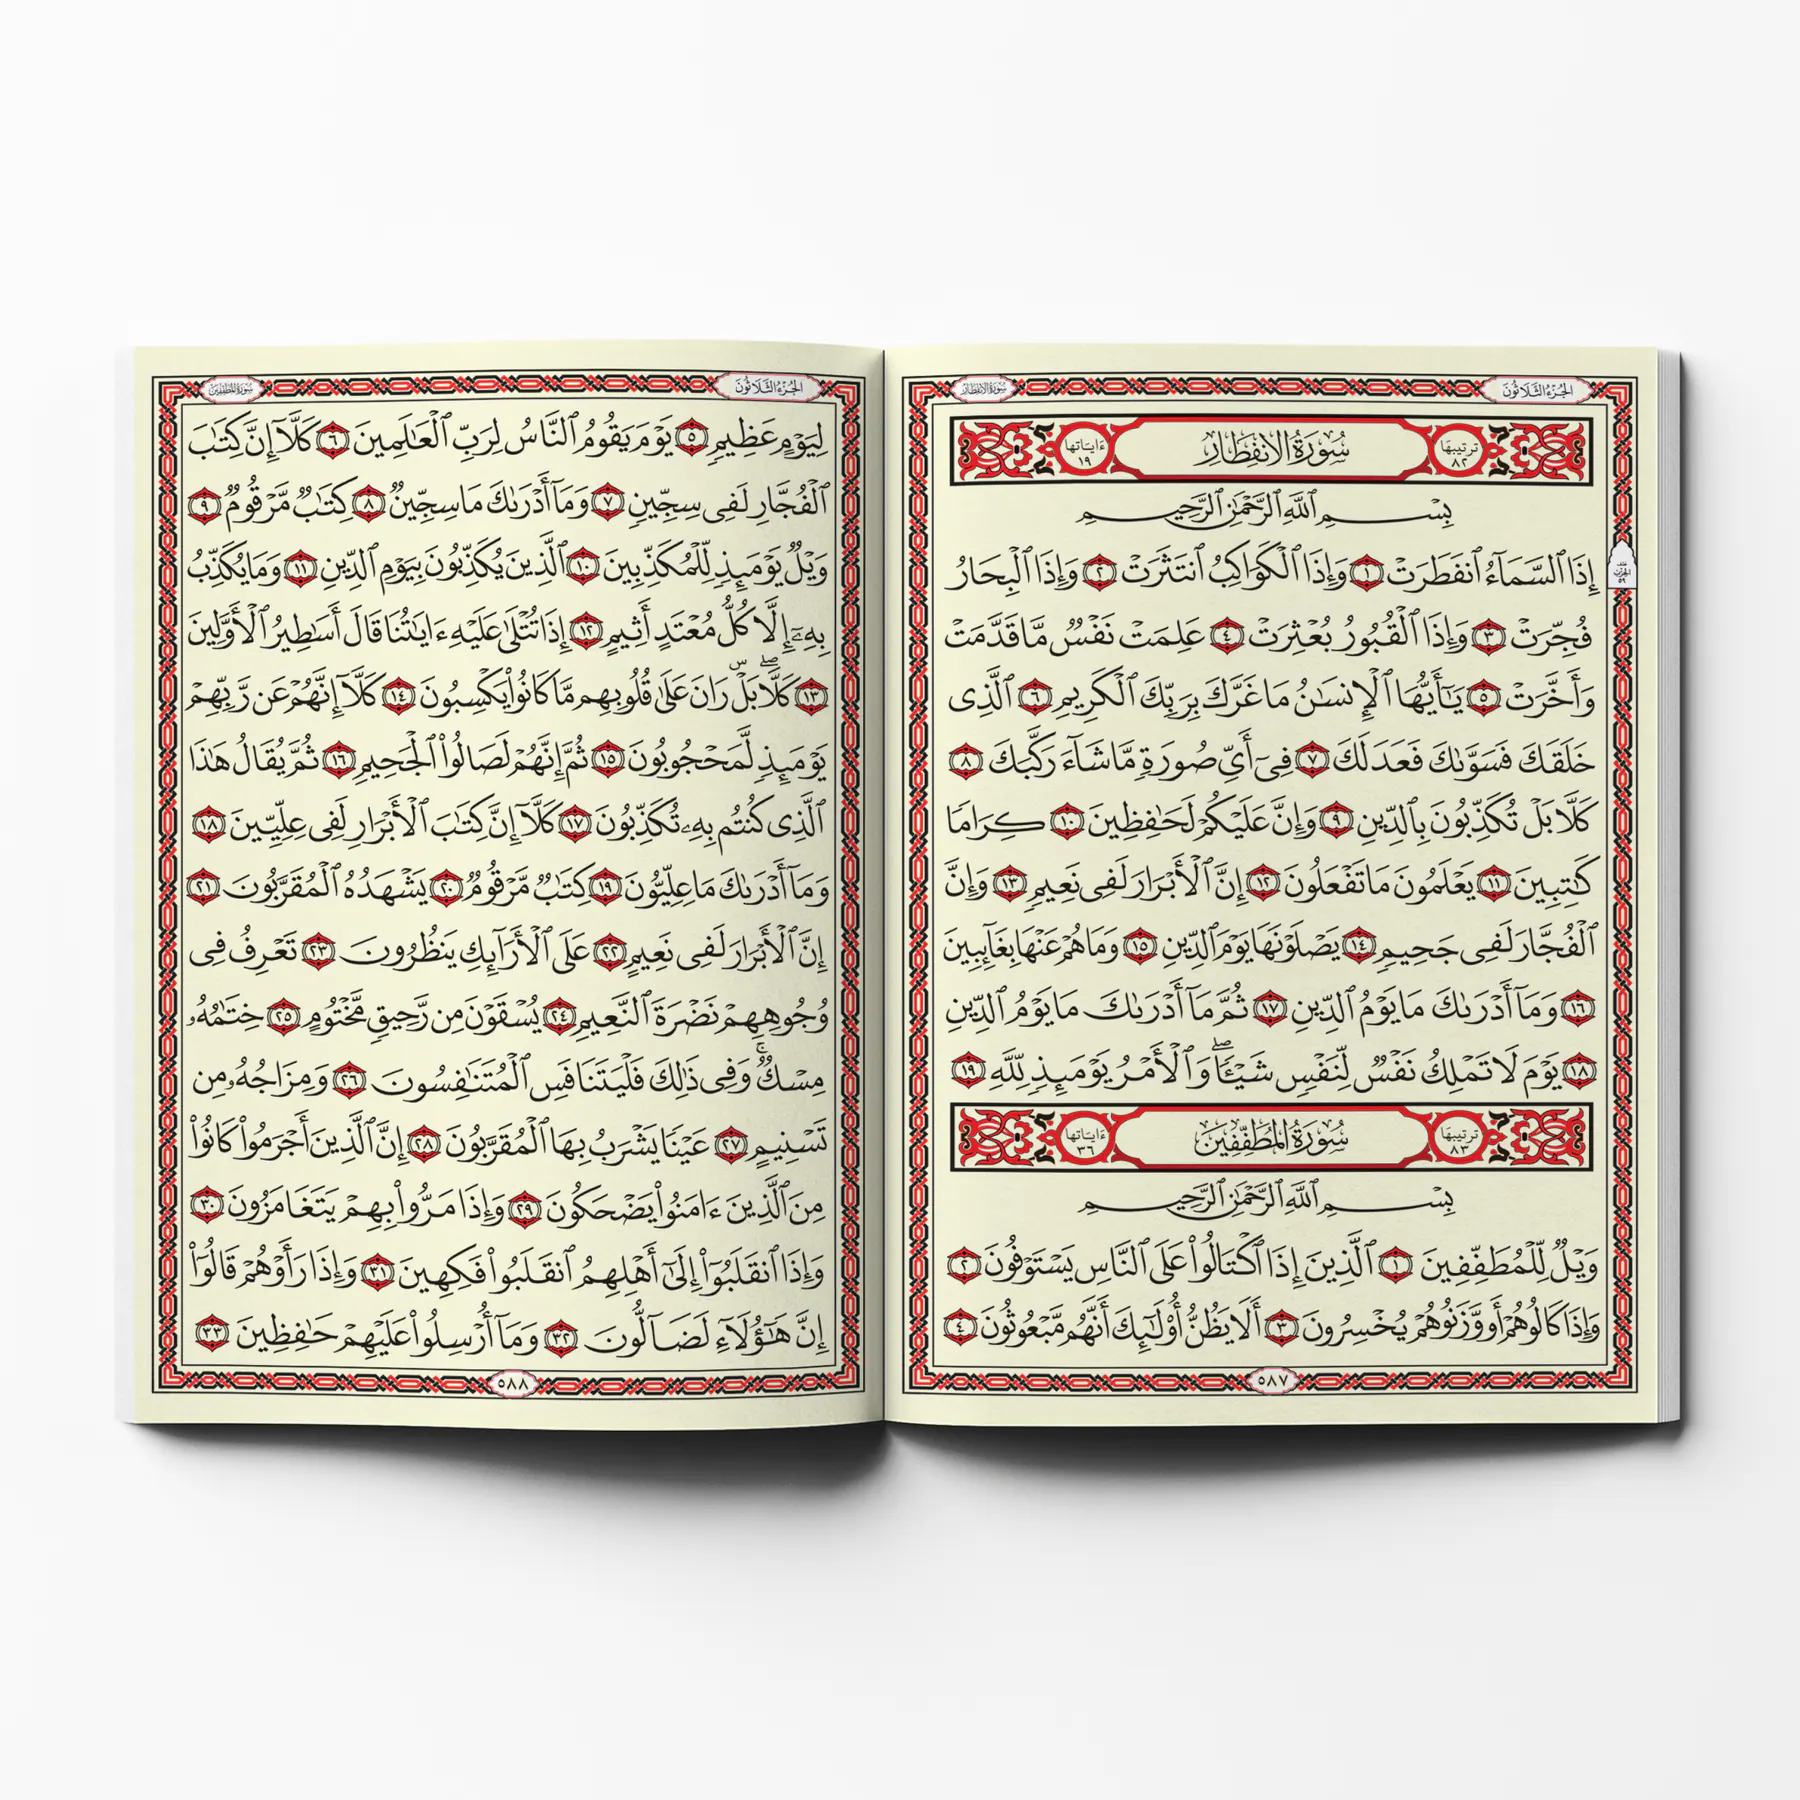 الجزء الثلاثون
سورة الانفطار
ترتيبها ٨٢
سُورَةُ الانفِطَارِ
ءاياتها ١٩
بِسْمِ ٱللَّهِ ٱلرَّحْمَٰنِ ٱلرَّحِيمِ
إِذَا ٱلسَّمَآءُ ٱنفَطَرَتْ ١ وَإِذَا ٱلْكَوَاكِبُ ٱنتَثَرَتْ ٢ وَإِذَا ٱلْبِحَارُ
فُجِّرَتْ ٣ وَإِذَا ٱلْقُبُورُ بُعْثِرَتْ ٤ عَلِمَتْ نَفْسٌ مَّا قَدَّمَتْ
وَأَخَّرَتْ ٥ يَٰٓأَيُّهَا ٱلْإِنسَٰنُ مَا غَرَّكَ بِرَبِّكَ ٱلْكَرِيمِ ٦ ٱلَّذِى
خَلَقَكَ فَسَوَّىٰكَ فَعَدَلَكَ ٧ فِىٓ أَىِّ صُورَةٍ مَّا شَآءَ رَكَّبَكَ ٨
كَلَّا بَلْ تُكَذِّبُونَ بِٱلدِّينِ ٩ وَإِنَّ عَلَيْكُمْ لَحَٰفِظِينَ ١٠ كِرَامًا
كَٰتِبِينَ ١١ يَعْلَمُونَ مَا تَفْعَلُونَ ١٢ إِنَّ ٱلْأَبْرَارَ لَفِى نَعِيمٍ ١٣ وَإِنَّ
ٱلْفُجَّارَ لَفِى جَحِيمٍ ١٤ يَصْلَوْنَهَا يَوْمَ ٱلدِّينِ ١٥ وَمَا هُمْ عَنْهَا بِغَآئِبِينَ
١٦ وَمَآ أَدْرَىٰكَ مَا يَوْمُ ٱلدِّينِ ١٧ ثُمَّ مَآ أَدْرَىٰكَ مَا يَوْمُ ٱلدِّينِ
١٨ يَوْمَ لَا تَمْلِكُ نَفْسٌ لِّنَفْسٍ شَيْـًٔا ۖ وَٱلْأَمْرُ يَوْمَئِذٍ لِّلَّهِ ١٩
ترتيبها ٨٣
سُورَةُ المُطَفِّفِينَ
ءاياتها ٣٦
بِسْمِ ٱللَّهِ ٱلرَّحْمَٰنِ ٱلرَّحِيمِ
وَيْلٌ لِّلْمُطَفِّفِينَ ١ ٱلَّذِينَ إِذَا ٱكْتَالُوا۟ عَلَى ٱلنَّاسِ يَسْتَوْفُونَ ٢
وَإِذَا كَالُوهُمْ أَو وَّزَنُوهُمْ يُخْسِرُونَ ٣ أَلَا يَظُنُّ أُو۟لَٰٓئِكَ أَنَّهُم مَّبْعُوثُونَ ٤
٥٨٧
الجزء الثلاثون
سورة المطففين
لِيَوْمٍ عَظِيمٍ ٥ يَوْمَ يَقُومُ ٱلنَّاسُ لِرَبِّ ٱلْعَٰلَمِينَ ٦ كَلَّآ إِنَّ كِتَٰبَ
ٱلْفُجَّارِ لَفِى سِجِّينٍ ٧ وَمَآ أَدْرَىٰكَ مَا سِجِّينٌ ٨ كِتَٰبٌ مَّرْقُومٌ ٩
وَيْلٌ يَوْمَئِذٍ لِّلْمُكَذِّبِينَ ١٠ ٱلَّذِينَ يُكَذِّبُونَ بِيَوْمِ ٱلدِّينِ ١١ وَمَا يُكَذِّبُ
بِهِۦٓ إِلَّا كُلُّ مُعْتَدٍ أَثِيمٍ ١٢ إِذَا تُتْلَىٰ عَلَيْهِ ءَايَٰتُنَا قَالَ أَسَٰطِيرُ ٱلْأَوَّلِينَ
١٣ كَلَّا ۖ بَلْ ۜ رَانَ عَلَىٰ قُلُوبِهِم مَّا كَانُوا۟ يَكْسِبُونَ ١٤ كَلَّآ إِنَّهُمْ عَن رَّبِّهِمْ
يَوْمَئِذٍ لَّمَحْجُوبُونَ ١٥ ثُمَّ إِنَّهُمْ لَصَالُوا۟ ٱلْجَحِيمِ ١٦ ثُمَّ يُقَالُ هَٰذَا
ٱلَّذِى كُنتُم بِهِۦ تُكَذِّبُونَ ١٧ كَلَّآ إِنَّ كِتَٰبَ ٱلْأَبْرَارِ لَفِى عِلِّيِّينَ ١٨
وَمَآ أَدْرَىٰكَ مَا عِلِّيُّونَ ١٩ كِتَٰبٌ مَّرْقُومٌ ٢٠ يَشْهَدُهُ ٱلْمُقَرَّبُونَ ٢١
إِنَّ ٱلْأَبْرَارَ لَفِى نَعِيمٍ ٢٢ عَلَى ٱلْأَرَآئِكِ يَنظُرُونَ ٢٣ تَعْرِفُ فِى
وُجُوهِهِمْ نَضْرَةَ ٱلنَّعِيمِ ٢٤ يُسْقَوْنَ مِن رَّحِيقٍ مَّخْتُومٍ ٢٥ خِتَٰمُهُۥ
مِسْكٌ ۚ وَفِى ذَٰلِكَ فَلْيَتَنَافَسِ ٱلْمُتَنَٰفِسُونَ ٢٦ وَمِزَاجُهُۥ مِن
تَسْنِيمٍ ٢٧ عَيْنًا يَشْرَبُ بِهَا ٱلْمُقَرَّبُونَ ٢٨ إِنَّ ٱلَّذِينَ أَجْرَمُوا۟ كَانُوا۟
مِنَ ٱلَّذِينَ ءَامَنُوا۟ يَضْحَكُونَ ٢٩ وَإِذَا مَرُّوا۟ بِهِمْ يَتَغَامَزُونَ ٣٠
وَإِذَا ٱنقَلَبُوٓا۟ إِلَىٰٓ أَهْلِهِمُ ٱنقَلَبُوا۟ فَكِهِينَ ٣١ وَإِذَا رَأَوْهُمْ قَالُوٓا۟
إِنَّ هَٰٓؤُلَآءِ لَضَآلُّونَ ٣٢ وَمَآ أُرْسِلُوا۟ عَلَيْهِمْ حَٰفِظِينَ ٣٣
٥٨٨